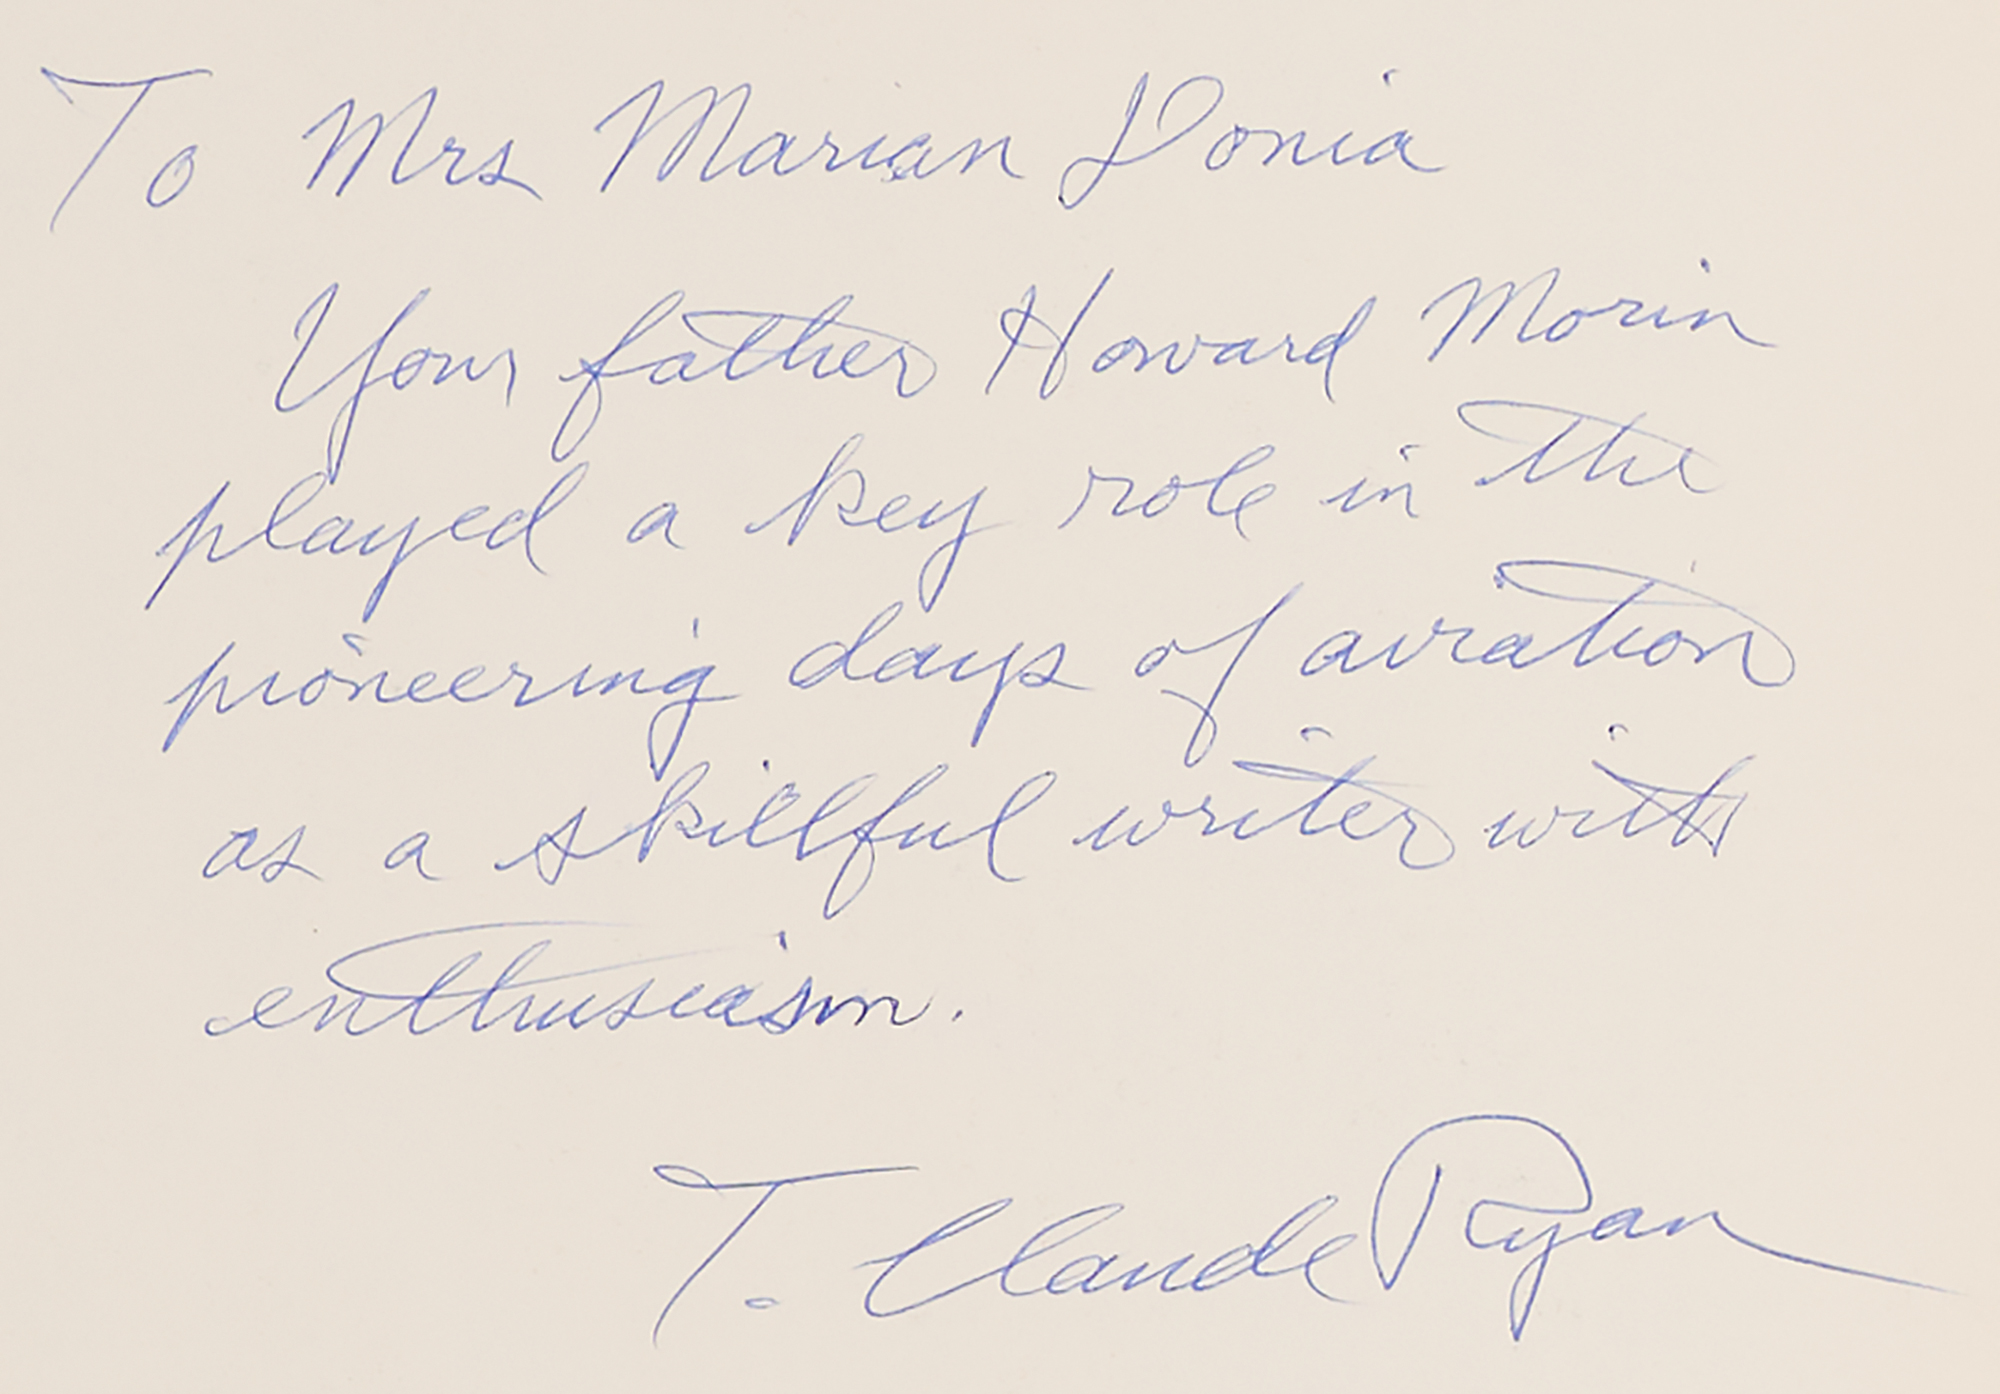 To Mrs Marian Donia
Your father Howard Morin
played a key role in the
pioneering days of aviation
as a skillful writer with
enthusiasm.
T. Claude Ryan